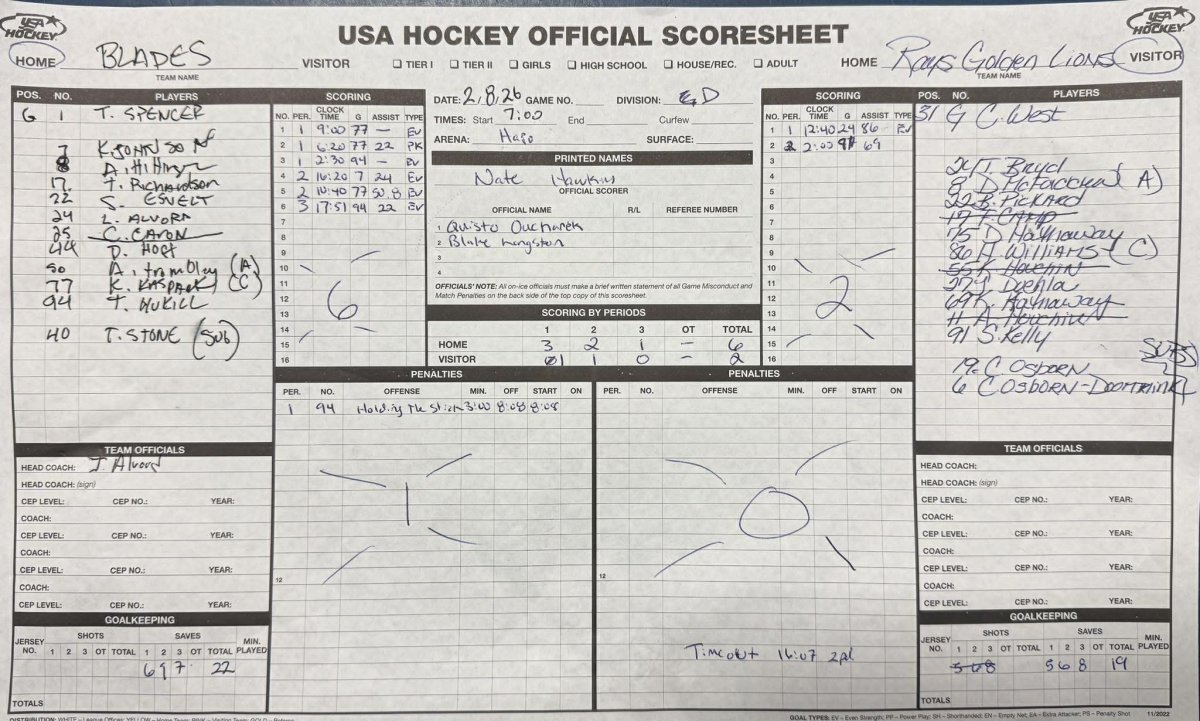 USA HOCKEY
USA HOCKEY OFFICIAL SCORESHEET
USA HOCKEY
HOME BLADES VISITOR ☐ TIER I ☐ TIER II ☐ GIRLS ☐ HIGH SCHOOL ☐ HOUSE/REC. ☐ ADULT HOME Rays Golden Lions VISITOR
TEAM NAME TEAM NAME
POS. NO. PLAYERS
G 1 T. SPENCER
7 K. JOHNSON
8
17 T. Richardson
22 S. ESVELT
24 L. ALVORD
25 C. CARON
44 D. HOFT
50 A. trombley (A)
77 K. KASPAREK (C)
94 T. MUKILL
40 T. STONE (SUB)
TEAM OFFICIALS
HEAD COACH: J Alvord
HEAD COACH: (sign)
CEP LEVEL: CEP NO.: YEAR:
COACH:
CEP LEVEL: CEP NO.: YEAR:
COACH:
CEP LEVEL: CEP NO.: YEAR:
COACH:
CEP LEVEL: CEP NO.: YEAR:
GOALKEEPING
JERSEY NO. SHOTS 1 2 3 OT TOTAL SAVES 1 2 3 OT TOTAL MIN. PLAYED
6 9 7 22
TOTALS
SCORING
NO. PER. CLOCK TIME G ASSIST TYPE
1 1 9:00 77 — EV
2 1 6:20 77 22 PK
3 1 2:30 94 — EV
4 2 16:20 7 24 EV
5 2 10:40 77 50,8 EV
6 3 17:51 94 22 EV
7
8
9
10
11
12
13
14
15
16
6
DATE: 2,8,26 GAME NO. DIVISION: ED
TIMES: Start 7:00 End Curfew
ARENA: Hajo SURFACE:
PRINTED NAMES
Nate Hawkins
OFFICIAL SCORER
OFFICIAL NAME R/L REFEREE NUMBER
1 Quisto Oucharek
2 Blake Langston
3
4
OFFICIALS' NOTE: All on-ice officials must make a brief written statement of all Game Misconduct and
Match Penalties on the back side of the top copy of this scoresheet.
SCORING BY PERIODS
1 2 3 OT TOTAL
HOME 3 2 1 — 6
VISITOR 1 1 0 — 2
SCORING
NO. PER. CLOCK TIME G ASSIST TYPE
1 1 12:40 24 86 — EV
2 2 2:00 91 69
3
4
5
6
7
8
9
10
11
12
13
14
15
16
2
PENALTIES
PER. NO. OFFENSE MIN. OFF START ON
1 94 Holding The Stick 3:00 8:08 8:08
1
12
PENALTIES
PER. NO. OFFENSE MIN. OFF START ON
0
12
Timeout 16:07 2pd
POS. NO. PLAYERS
31 G C. West
24 T. Bryd
8 D McFadden (A)
22 B. Pickard
17 T. CAMP
75 D Hathaway
86 A. WILLIAMS (C)
55 K. Houchin
27 J Doehla
69 K. Hathaway
11 A. Houchin
91 S. Kelly
SUBS
19 C. OSBORN
6 C. OSBORN-
TEAM OFFICIALS
HEAD COACH:
HEAD COACH: (sign)
CEP LEVEL: CEP NO.: YEAR:
COACH:
CEP LEVEL: CEP NO.: YEAR:
COACH:
CEP LEVEL: CEP NO.: YEAR:
COACH:
CEP LEVEL: CEP NO.: YEAR:
GOALKEEPING
JERSEY NO. SHOTS 1 2 3 OT TOTAL SAVES 1 2 3 OT TOTAL MIN. PLAYED
5 6 8 5 6 8 19
TOTALS
DISTRIBUTION: WHITE – League Offices; YELLOW – Home Team; PINK – Visiting Team; GOLD – Referee
GOAL TYPES: EV – Even Strength; PP – Power Play; SH – Shorthanded; EN – Empty Net; EA – Extra Attacker; PS – Penalty Shot 11/2022